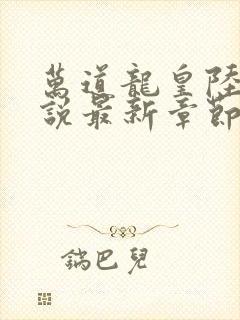 萬道龍皇陸
說最新章節
鍋巴兒